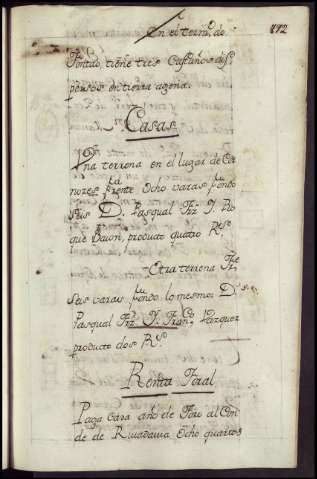 En el term.º do
172
Fontao, tiene tres Castaños dis
persos en tierra agena.
Casas
Una terrena en el lugar de
nozes frente Ocho varas fondo
seis D. Pasqual Frz Y. Ro
que Bauon, producto quatro R.s
Otra terrena Fte
seis varas fondo lo mesmo D.
Pasqual Frz Y. Fran.co Vazquez
producto dos R.s
Renta Foral
Paga cada año de Foro al Con
de de Rivadavia Ocho quartos